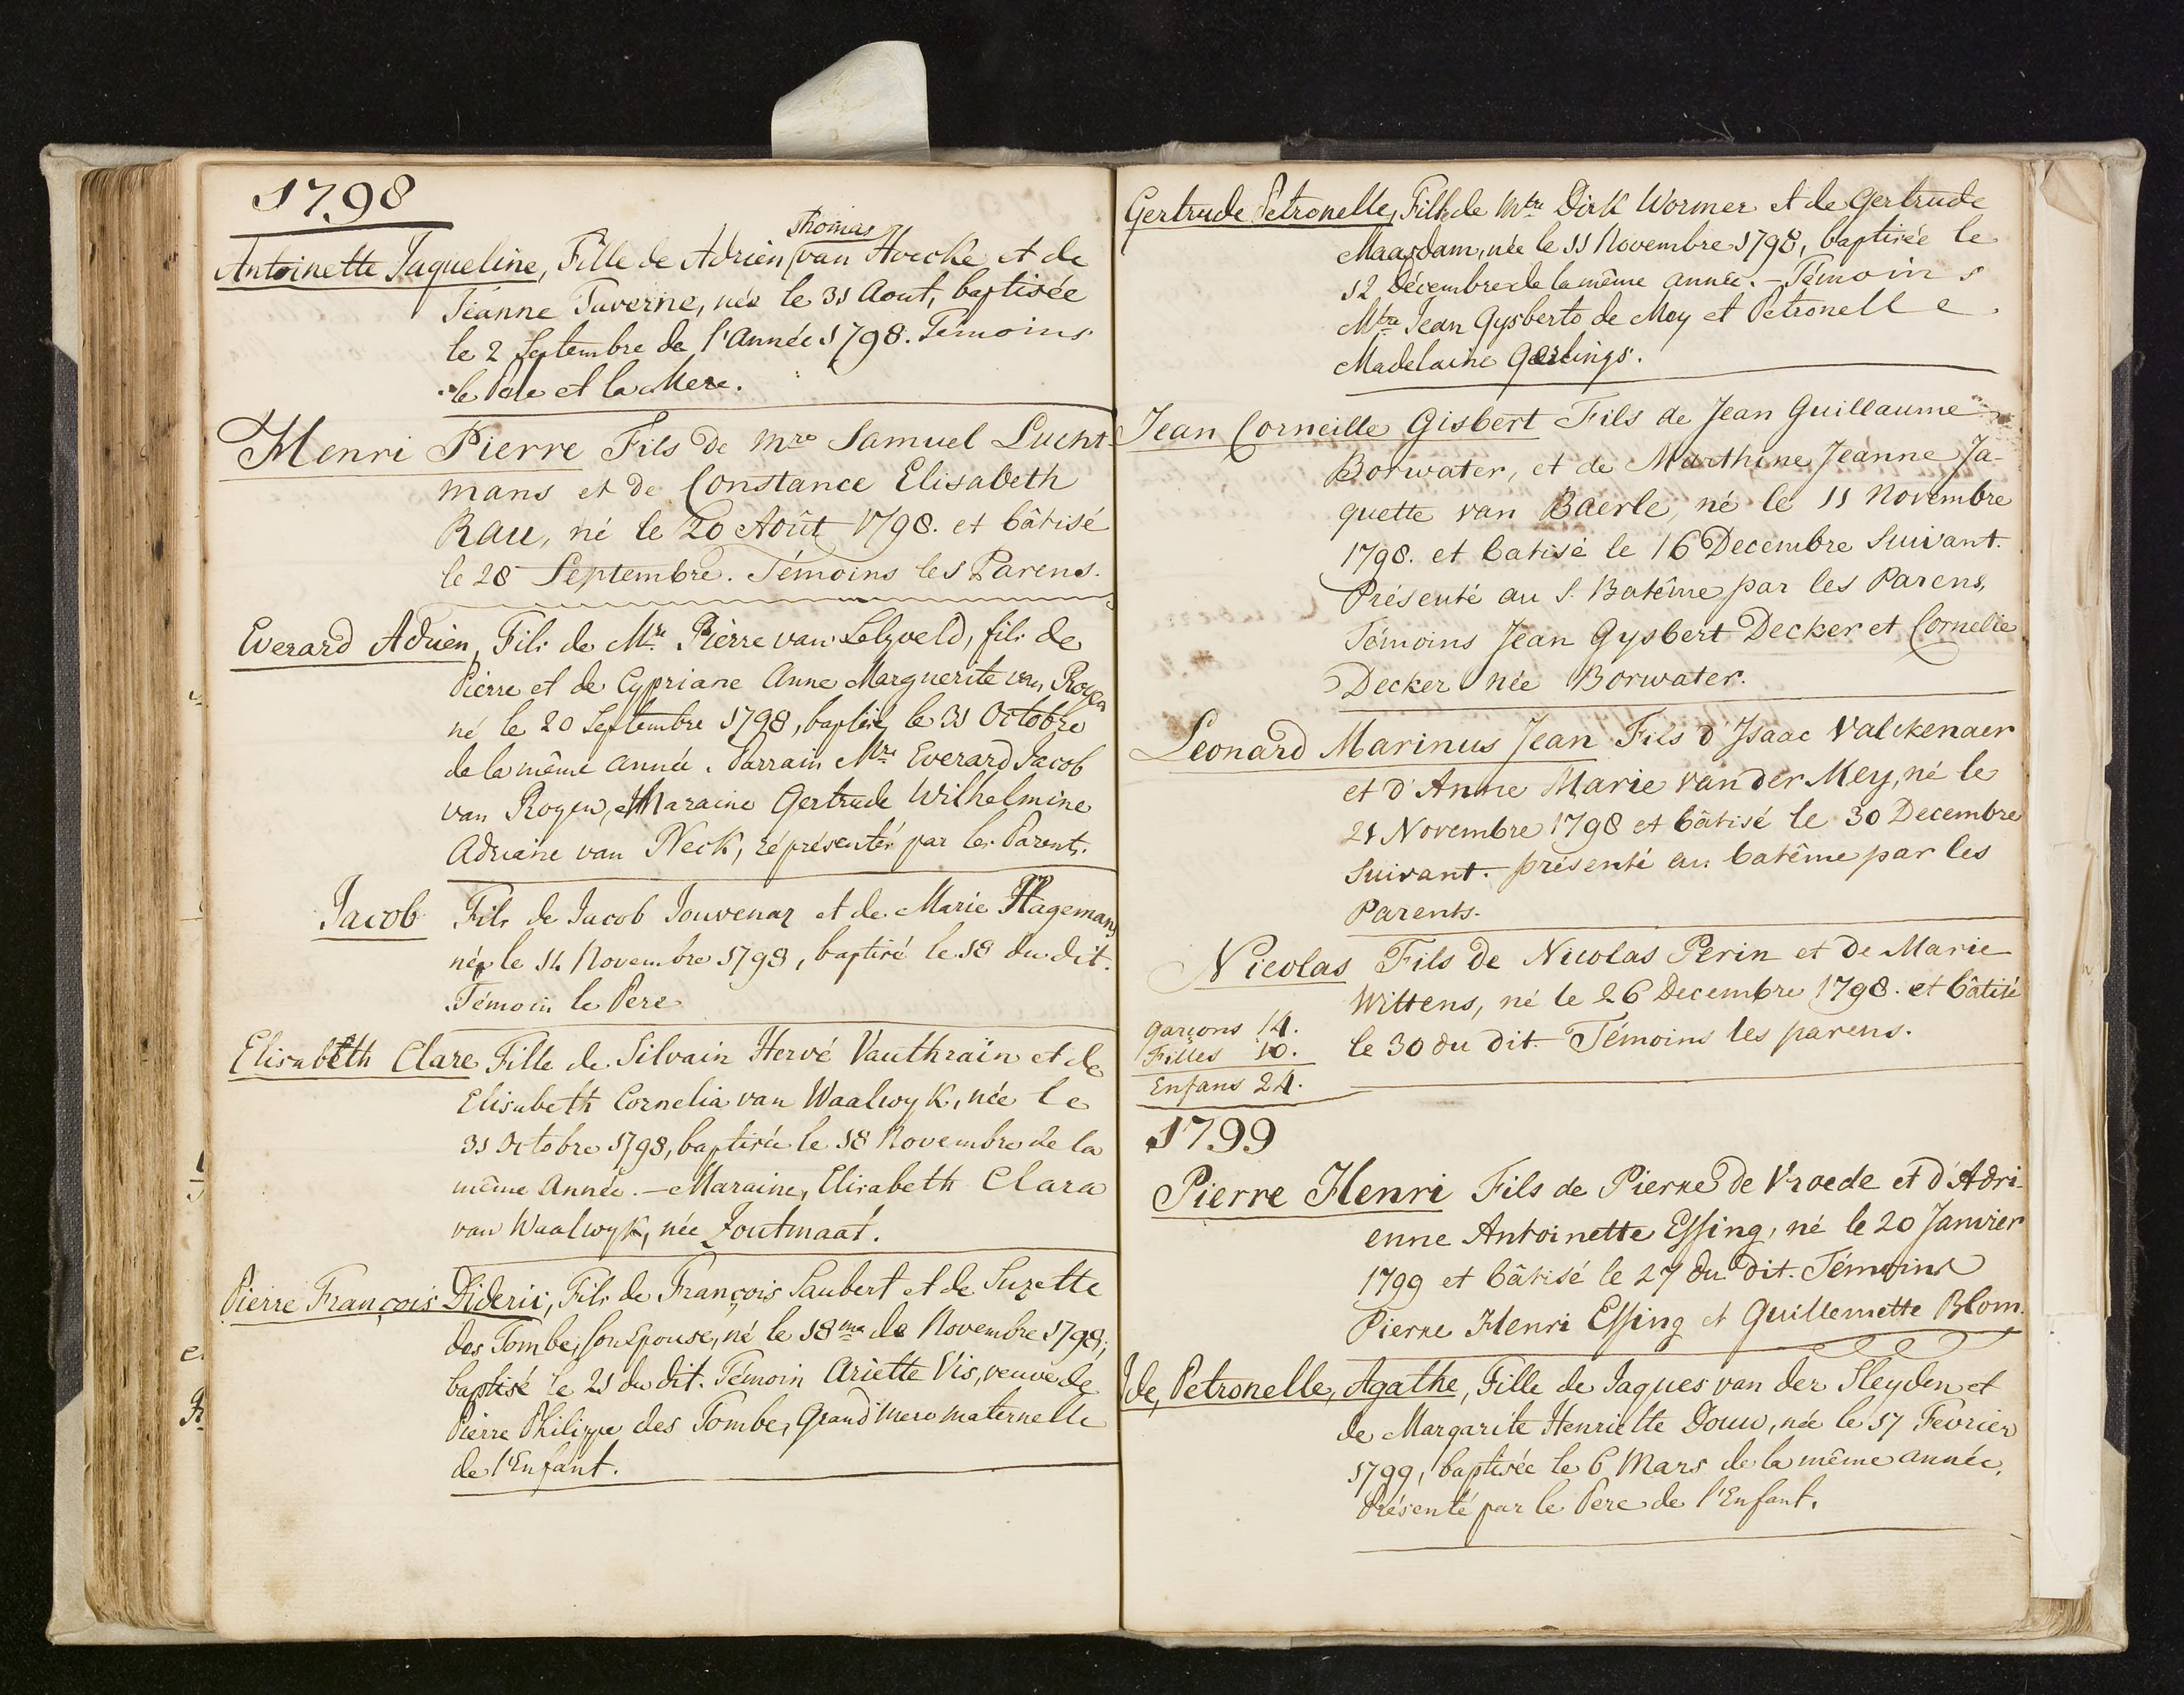 1798
Thomas
Antoinette Jaqueline, Fille de Adrien van Hoecke et de
Jeanne Taverne, née le 31 Aout, baptisée
le 2 Septembre de l'année 1798. Temoins
le Pere et la Mere.
Henri Pierre Fils de Mre Samuel Lucht-
mans et de Constance Elisabeth
Rau, né le 20 Août 1798. et bâtisé
le 28 Septembre. Témoins les Parens.
Everard Adrien, Fils de Mr. Pierre van Lelyveld, fils de
Pierre et de Cypriane Anne Marguerite van Royen
né le 20 Septembre 1798, baptisé le 31 Octobre
de la même année. Parrain Mre Everard Jacob
van Royen, Maraine Gertrude Wilhelmine
Adriane van Neck, réprésentés par les Parents.
Jacob Fils de Jacob Jouvenaz et de Marie Hagemans
né le 14 Novembre 1798, baptisé le 18 du dit.
Témoin le Pere
Elisabeth Clare Fille de Silvain Hervé Vauthraïn et de
Elisabeth Cornelia van Waalwyk, née le
31 Octobre 1798, baptisée le 18 Novembre de la
même Année. - Maraine, Elisabeth Clara
van Waalwyk, née Zoutmaat.
Pierre François Dideric, Fils de François Saubert et de Suzette
des Tombe, son Epouse, né le 18me de Novembre 1798,
baptisé le 21 du dit. Témoin Ariette Vis, veuve de
Pierre Philippe des Tombe, Grand'mere maternelle
de l'Enfant.
Gertrude Petronelle, Fille de Mtre Dirk Wormer et de Gertrude
Maasdam, née le 11 Novembre 1798, baptisée le
12 Décembre de la même année. - Témoins
Mtre Jean Gysberto de Mey et Petronelle
Madelaine Gerlings.
Jean Corneille Gisbert Fils de Jean Guillaume
Borwater, et de Marthine Jeanne Ja-
quette van Baerle, né le 11 Novembre
1798. et batisé le 16 Decembre suivant.
Présenté au S. Batême par les Parens,
Témoins Jean Gysbert Decker et Cornelie
Decker née Borwater.
Leonard Marinus Jean Fils d'Isaac Valckenaer
et d'Anne Marie van der Mey, né le
21 Novembre 1798 et bâtisé le 30 Decembre
suivant. présenté au batême par les
Parents.
Nicolas Fils de Nicolas Perin et de Marie
Wittens, né le 26 Decembre 1798. et bâtisé
le 30 du dit. Témoins les parens.
garçons 14.
Filles 10.
Enfans 24.
1799
Pierre Henri Fils de Pierre de Vroede et d'Adri-
enne Antoinette Essing, né le 20 Janvier
1799 et bâtisé le 27 du dit. Témoins
Pierre Henri Essing et Guillemette Blom.
Ide, Petronelle, Agathe, Fille de Jaques van der Sleyden et
de Margarite Henriette Douw, née le 17 Fevrier
1799, baptisée le 6 Mars de la même année.
Présenté par le Pere de l'Enfant.